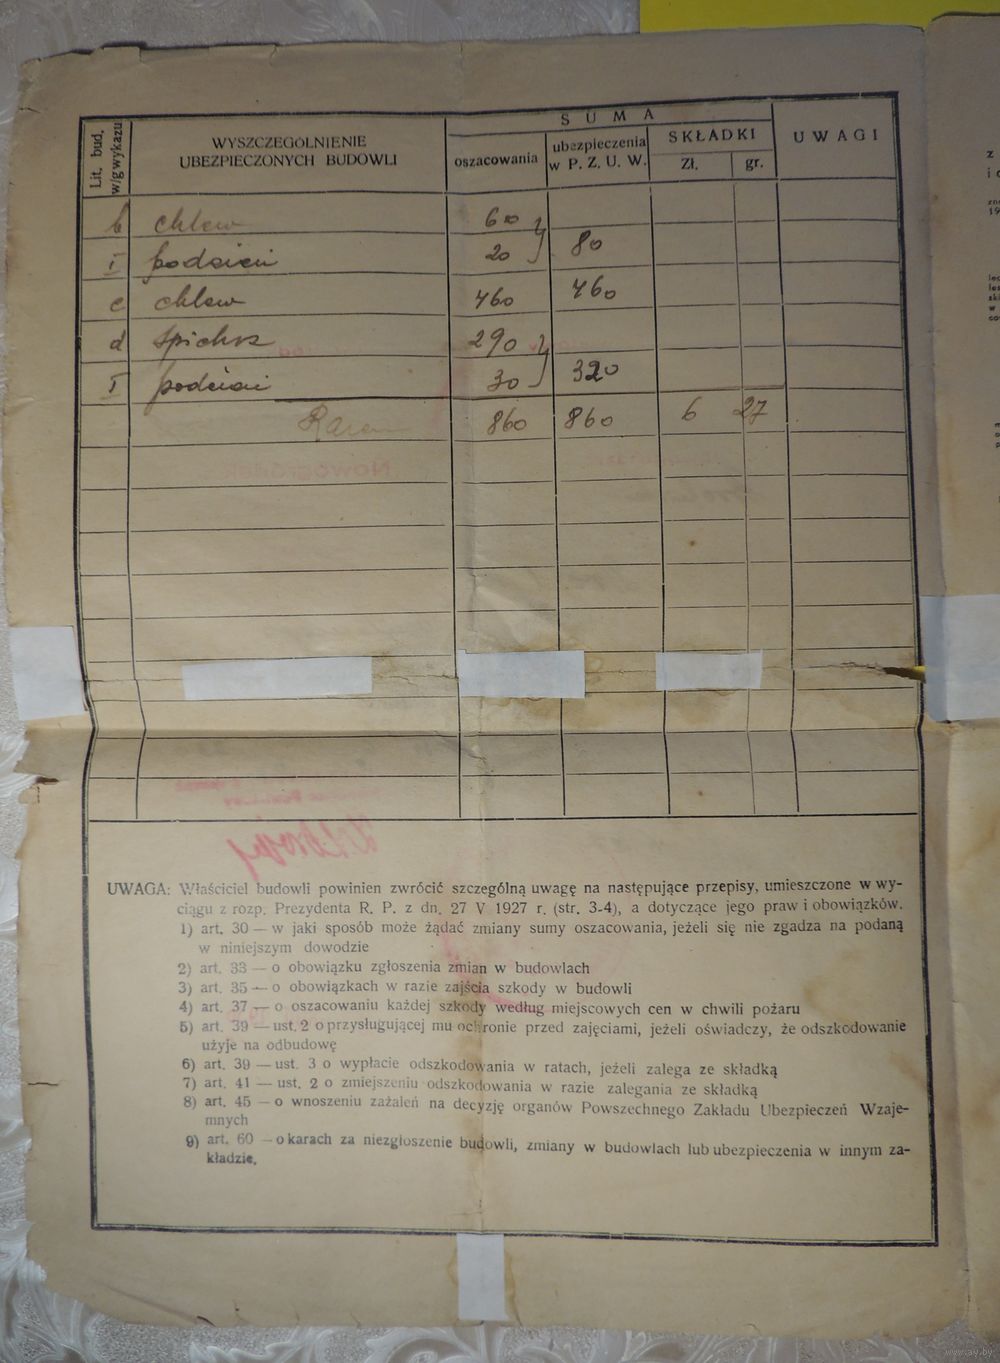 Lit. bud. w/g wykazu
WYSZCZEGÓLNIENIE UBEZPIECZONYCH BUDOWLI
SUMA
oszacowania
ubezpieczenia w P. Z. U. W.
SKŁADKI
Zł.
gr.
UWAGI
b chlew 60
I podsień 20 80
c chlew 460 460
d spichrz 290
I podsień 30 320
Razem 860 860 6 27
Nowogródek
UWAGA: Właściciel budowli powinien zwrócić szczególną uwagę na następujące przepisy, umieszczone w wy-
ciągu z rozp. Prezydenta R. P. z dn. 27 V 1927 r. (str. 3-4), a dotyczące jego praw i obowiązków.
1) art. 30 — w jaki sposób może żądać zmiany sumy oszacowania, jeżeli się nie zgadza na podaną
w niniejszym dowodzie
2) art. 33 — o obowiązku zgłoszenia zmian w budowlach
3) art. 35 — o obowiązkach w razie zajścia szkody w budowli
4) art. 37 — o oszacowaniu każdej szkody według miejscowych cen w chwili pożaru
5) art. 39 — ust. 2 o przysługującej mu ochronie przed zajęciami, jeżeli oświadczy, że odszkodowanie
użyje na odbudowę
6) art. 39 — ust. 3 o wypłacie odszkodowania w ratach, jeżeli zalega ze składką
7) art. 41 — ust. 2 o zmiejszeniu odszkodowania w razie zalegania ze składką
8) art. 45 — o wnoszeniu zażaleń na decyzję organów Powszechnego Zakładu Ubezpieczeń Wzaje-
mnych
9) art. 60 — o karach za niezgłoszenie budowli, zmiany w budowlach lub ubezpieczenia w innym za-
kładzie.
www.ay.by